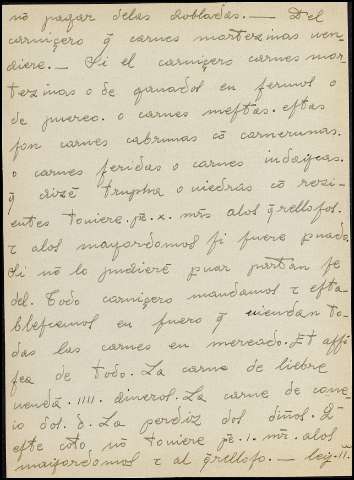 nō pagar delas dobladas. — Del
carniçero q̄ carnes mortezinas ven-
diere. — Si el carniçero carnes mor-
tezinas o de ganados enfermo o
de puerco. o carnes meſtas. eſtas
ſon carnes cabrunas cō carnerunas.
o carnes feridas o carnes iudaycas.
q̄ dizē trupha o viedras cō rezi-
entes touiere. pe. x. mr̄s alos q̄relloſos.
τ alos mayordomos ſi fuere puado.
Si nō lo pudierē puar partan ſe
del. Todo carniçero mandamos τ eſta-
bleſcemos en fuero q̄ viendan to-
das las carnes en mercado. Et aſſi
ſea de todo. La carne de liebre
vendā. IIII. dineros. La carne de cone-
io dos. d. La perdiz dos din̄os. Q̄
eſte coto nō touiere pe. i. mr̄. alos
mayordomos τ al q̄relloſo. — ley. II.